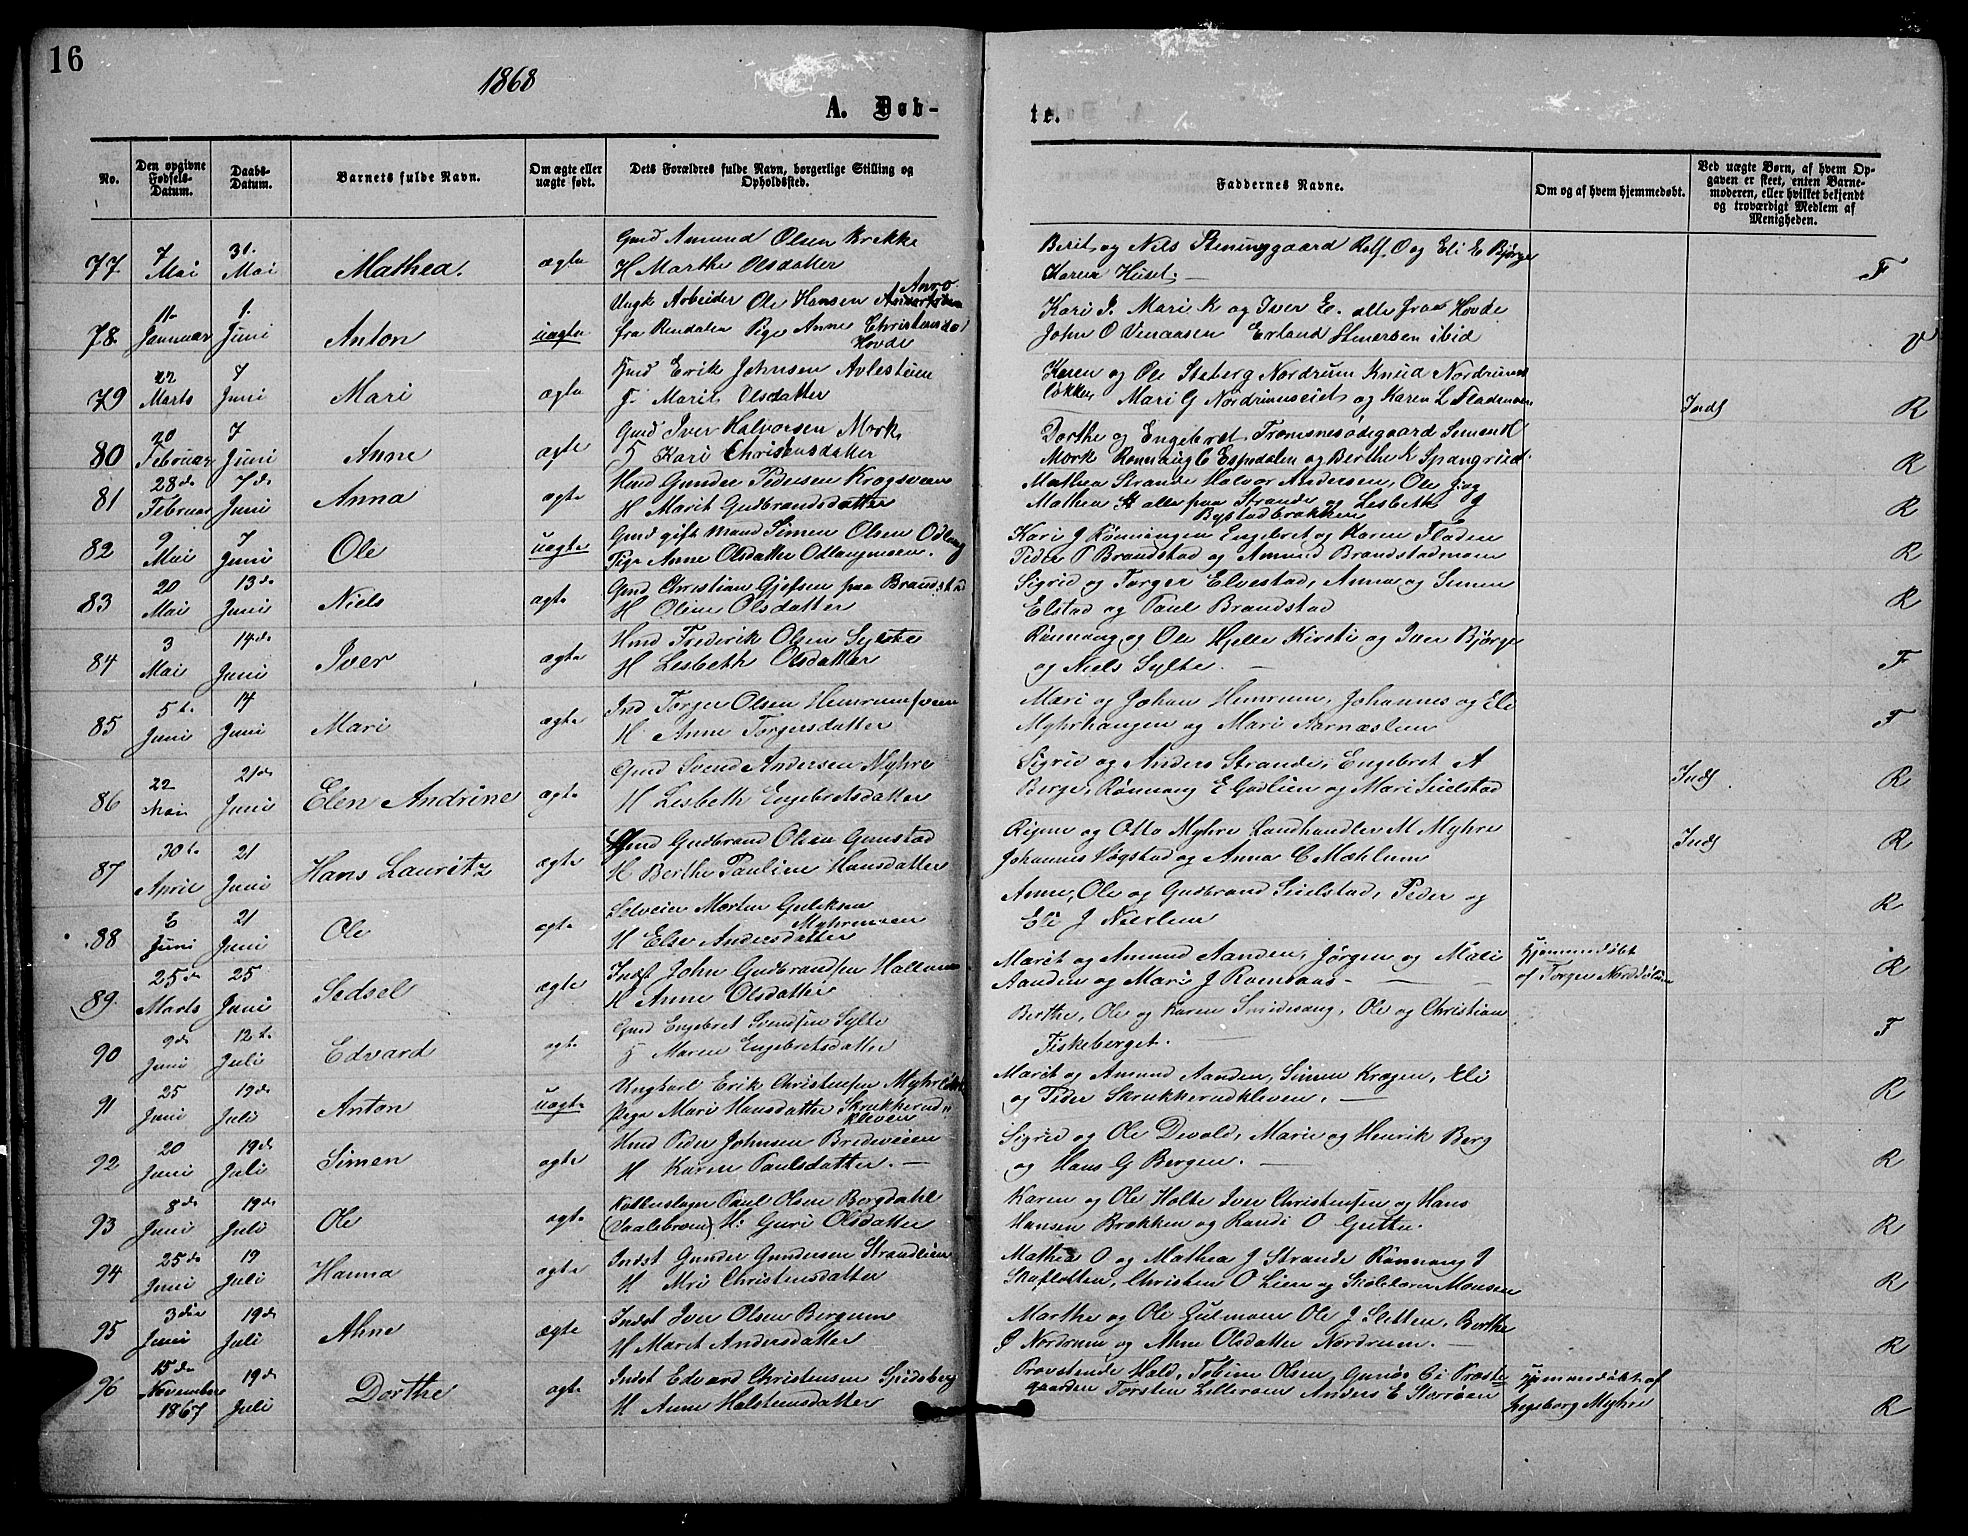 16
1868
A. Døb-
te.
No.
Den opgivne Fødsels-Datum.
Daabs-Datum.
Barnets fulde Navn.
Om ægte eller uægte født.
Dets Forældres fulde Navn, borgerlige Stilling og Opholdssted.
Faddernes Navne.
Om og af hvem hjemmedøbt.
Ved uægte Børn, af hvem Op-
gaven er skeet, enten Barne-
moderen, eller hvilket bekjendt
og troværdigt Medlem af
Menigheden.
77 7 Mai 31. Mai Mathea. ægte
Gmd Amund Olsen Krekke
H Marthe Olsdatter
Berit og Nils Steninggaard Rolf O og Eli E Bjørge
Karen Huset. F
78 11 Januar 1. Juni Anton uægte
Ungk Arbeider Ole Hansen Anro
fra Rendalen Pige Anne Christensdat
Hovde
Kari J. Mari K og Iver E. alle fra Hovde
John O Venaasen Erland Simensen ibid V
79 22 Marts 7 Juni Mari ægte
Gmd Erik Johnsen Avlestuen
H Marit Olsdatter
Karen og Ole Steberg Nordrum Knud Nordrums
løkken Mari G Nordrumseiet og Karen L Flademoen Inds R
80 20 Februar 7 Juni Anne ægte
Gmd Iver Halvorsen Mork
H Kari Christensdatter
Dorthe og Engebret Tromsnesødegaard Simen H
Mork Rønnaug C Espedalen og Berthe L Spangrud R
81 28de Februar 7de Juni Anna ægte
Hmd Gunder Pedersen Krogsveen
H Marit Gudbrandsdatter
Mathea Strande Halvor Andersen, Ole J og
Mathea H alle fra Strande og Lisbeth J
Bystadbrekken R
82 9 Mai 7 Juni Ole uægte
Gmd gift Mand Simen Olsen Odlaug
Pige Anne Olsdatter Odlaugmoen.
Kari J Rønningen Engebret og Karen Fladen
Peder O Brandstad og Amund Brandstadmoen R
83 20 Mai 13de Juni Niels ægte
Gmd Christian Gjefsen paa Brandstad
H Oline Olsdatter
Sigrid og Torger Elvestad, Anna og Simen
Elstad og Paul Brandstad R
84 3 Mai 14de Juni Iver ægte
Hmd Frederik Olsen Sylte
H Lisbeth Olsdatter
Rønnaug og Ole Hjelle Kirsti og Iver Bjørge
og Niels Sylte. F
85 5te Juni 14 Juni Mari ægte
Ind Torger Olsen Hemrumsveen
H Anne Torgersdatter
Mari og Johan Hemrum, Johannes og Eli
Myhrhaugen og Mari Aarnæslien F
86 22 Mai 21de Juni Elen Andrine ægte
Gmd Svend Andersen Myhre
H Lisbeth Engebretsdatter
Sigrid og Anders Strande, Engebret A
Berge, Rønnaug E Gudlien og Mari Seielstad Inds. R
87 30te April 21 Juni Hans Lauritz ægte
Gmd Gudbrand Olsen Gunstad
H Berthe Pauline Hansdatter
og Otto Myhre Landhandler M Myhre
Johannes Høgstad og Anna C Mæhlum Inds R
88 6 Juni 21 Juni Ole ægte
Selveier Morten Guliksen
Myhremoen
H Else Andersdatter
Anne, Ole og Gudbrand Seielstad, Peder og
Eli J Nærlien R
89 25de Marts 25 Juni Sedsel ægte
Indst John Gudbrandsen Hallum
H Anne Olsdatter
Marit og Amund Aanden, Jørgen og Mali
Aanden og Mari J Romsaas
Hjemmedøbt
af Torger R
90 9de Juni 12te Juli Edvard ægte
Gmd Engebret Svendsen Sylte
H Maren Engebretsdatter
Berthe, Ole og Karen Smidesang, Ole og Christian
Fiskeberget. F
91 25 Juni 19de Juli Anton uægte
Ungkarl Erik Christensen
Pige Mari Hansdatter Skrukkerud-
kleven
Marit og Amund Aanden, Simen Kragen, Eli
og Peder Skrukkerudkleven. R
92 20 Juni 19de Juli Simen ægte
Hmd Peder Johnsen Bredeveien
H Karen Paulsdatter.
Sigrid og Ole Devold, Marie og Henrik Berg
og Hans G Bergen. R
93 8de Juni 19de Juli Ole ægte
Paul Olsen Bergdahl
(Vaalebroen) H. Guri Olsdatter
Karen og Ole Holte Iver Christensen og Hans
Hansen Brækken og Randi O R
94 25de Juni 19 Juli Hanna ægte
Indst Gunder Gundersen Strandlien
H Mri Christensdatter
Mathea O og Mathea J Strande Rønnaug J
Skafløtten, Christen O Lien og Skolelærer Monsen R
95 3die Juni 19de Juli Ahne ægte
Indst Iver Olsen Bergum
H Marit Andersdatter
Marthe og Ole Gulmoen Ole J Sletten, Berthe
Ø Nordrum og Ahne Olsdatter Nordrum. R
96 15de November 1867 19de Juli Dorthe ægte
Indst Edvard Christensen Spidsberg
H Anne Halstensdatter
Provstinde Hald, Tobine Olsen, Præste
gaarden Torsten Lillemoen Anders E Stormoen
hjemmedøbt af
Ingeborg Myhre R